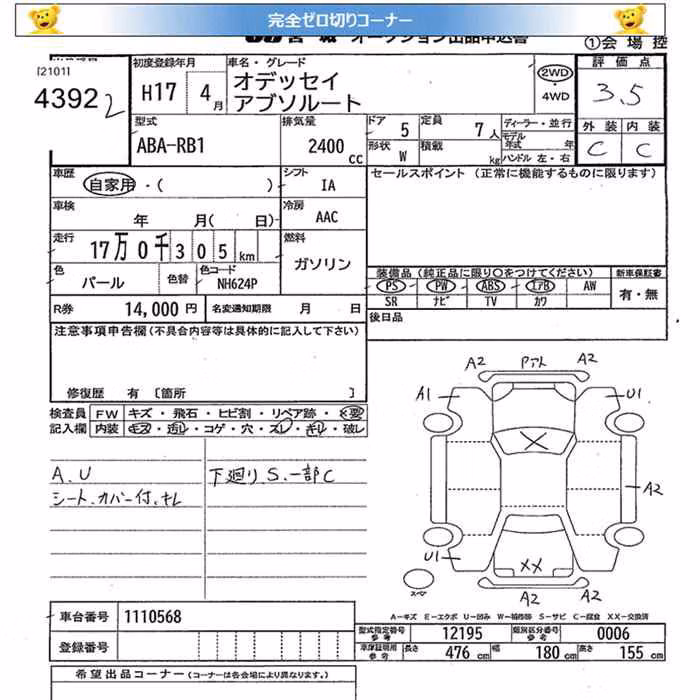 完全ゼロ切りコーナー
オークション出品申込書
①会場控
[2101]
43922
初度登録年月
H17 4月
車名・グレード
オデッセイ
アブソルート
2WD
・4WD
評価点
3.5
外装 内装
C C
型式
ABA-RB1
排気量
2400 cc
ドア 5
形状 W
定員 7人
積載 kg
ディーラー・並行
モデル年式 年
ハンドル 左・右
車歴
自家用・( )
シフト IA
セールスポイント (正常に機能するものに限ります)
車検
年 月( 日)
冷房 AAC
走行
17万0千305km
燃料
ガソリン
色
パール
色替
色コード
NH624P
装備品 (純正品に限り○をつけてください)
新車保証書
PS PW ABS エアB AW
SR ナビ TV カワ
有・無
R券 14,000円
名変通知期限 月 日
後日品
注意事項申告欄 (不具合内容等は具体的に記入して下さい)
修復歴 有 [箇所 ]
検査員 FW キズ・飛石・ヒビ割・リペア跡・×要
記入欄 内装 キズ・汚レ・コゲ・穴・スレ・キレ・破レ
A.U
シート、カバー付、キレ
下廻りS.一部C
A2 Pアト A2
A1 U1
X
A2
U1
XX
A2 A2
スペア
A-キズ E-エクボ U-凹み W-補修跡 S-サビ C-腐食 XX-交換済
車台番号 1110568
登録番号
型式指定番号 参考 12195
類別区分番号 参考 0006
車庫証明用 参考 長さ 476cm 幅 180cm 高さ 155cm
希望出品コーナー (コーナーは各会場により異なります。)